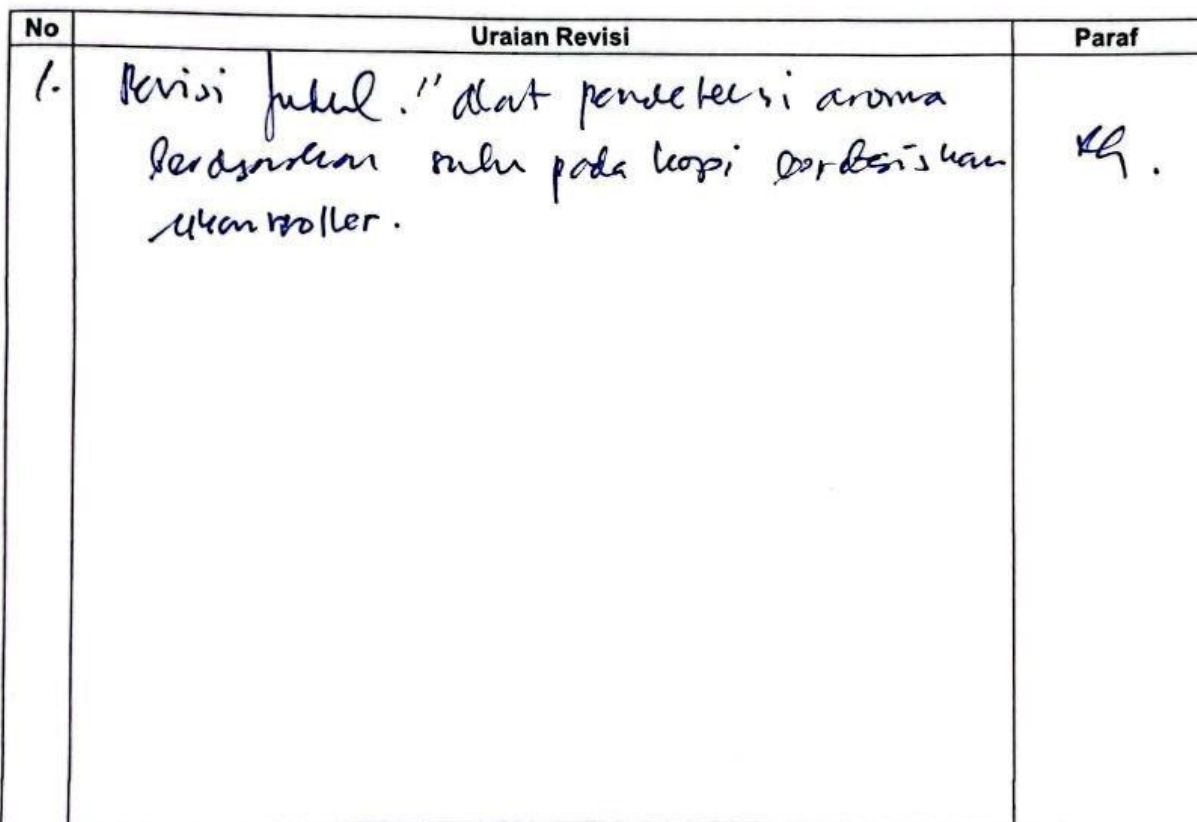 No Uraian Revisi Paraf
1. Revisi Judul. "Alat pendeteksi aroma
berdasarkan suhu pada kopi berbasiskan